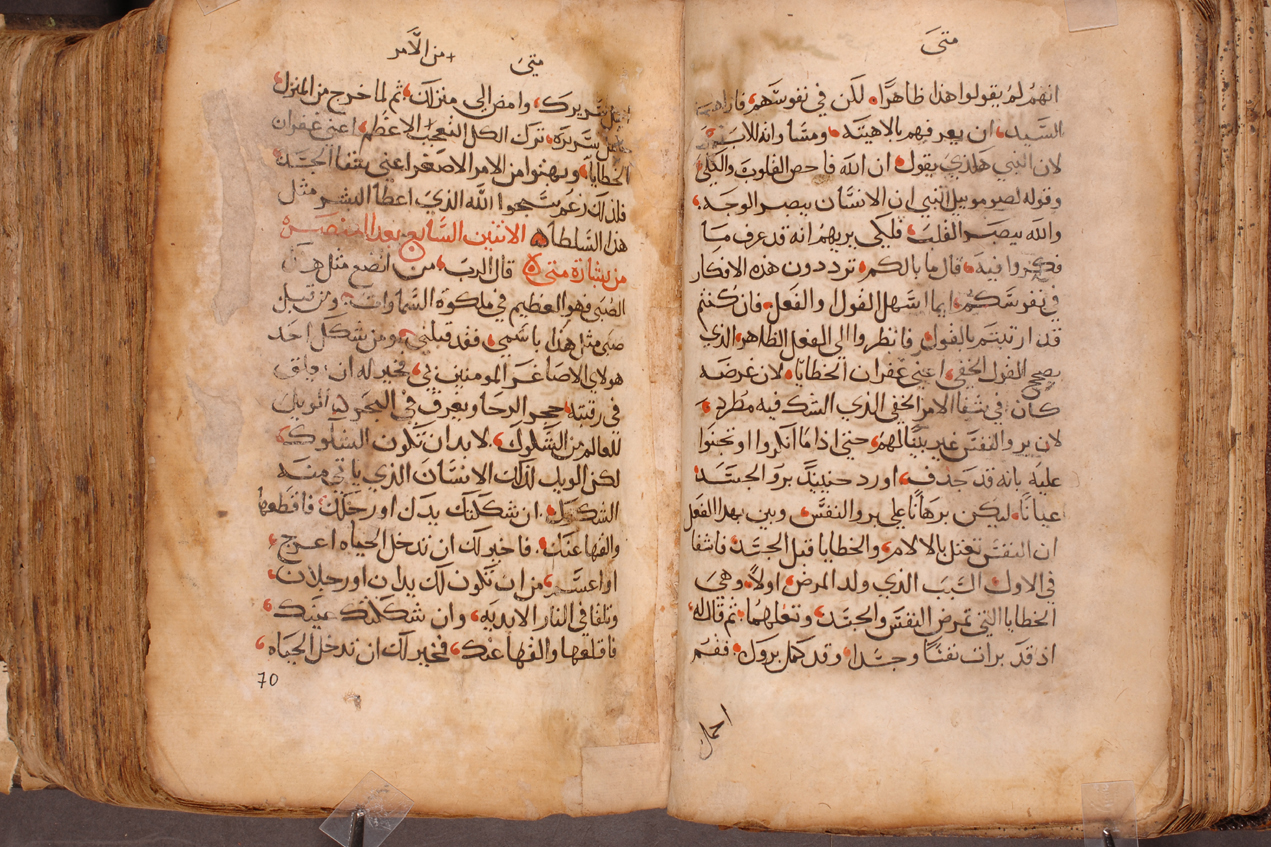 متى
انهم لم يقولوا هذا ظاهرًا، لكن في نفوسهم، فاراهم
السيد، ان يعرفهم بالاهيته، ومساواته للاب
لان النبي هكذي يقول، ان الله فاحص القلوب والكلى
وقوله لصوموييل النبي ان الانسان يبصر الوجه،
والله يبصر القلب، فلكي يريهم انه قد عرف ما
فكروا فيه، قال ما بالكم، ترددون هذه الافكار
في نفوسكم، ايما اسهل القول او الفعل، فان كنتم
قد ارتبتم بالقول، فانظروا الي الفعل الظاهر، الذي
يصحح القول الخفي، اعني غفران الخطايا، لان غرضه
كان في شفا الامر الخفي الذي الشك فيه مطرد،
لان برو النفس غير بينًا لهم، حتى اذا ما انكروا او تجنوا
عليه بانه قد جدف، اورد حينيذ برو الجسد،
عيانًا، ليكن برهانًا على برو النفس، وبين بهذا الفعل
ان النفس تعتل بالالام، والخطايا قبل الجسد، فاشفا
في الاول، السبب الذي ولد المرض، اولًا، وهي
الخطايا التي تمرض النفس والجسد، وتعلهما، ثم قال له
اذ قد برات نفسًا وجسدًا، وقد كمل بروك، فقم
احمل
متى
من الامر
احمل سريرك، وامض الى منزلك، ثم لما خرج من المنزل
حامل سريره، ترك الكل التعجب الاعظم، اعني غفران
الخطايا، وبهتوا من الامر الاصغر اعني شفا الجسد
فلذلك زعم سبحوا الله الذي اعطا البشر مثل
هذا السلطان الاثنين السابع بعد العنصره
من بشارة متى قال الرب، من اتضع مثل هذا
الصبي فهو العظيم في ملكوة السماوات، ومن قبل
صبي مثل هذا باسمي، فقد قبلني، ومن شكك احد
هولاي الاصاغر المومنين بي، فخير له ان يعلق
في رقبته، حجر الرحا ويغرق في البحر، الويل
للعالم من الشكوك، لا بد ان تكون الشكوك،
لكن الويل لذلك الانسان الذي ياتي منه
الشكوك، ان شككتك يدك او رجلك فاقطعها
والقها عنك، فاخير لك ان تدخل الحياه اعرج،
او اعسم، من ان تكون لك يدان او رجلان،
وتلقا في النار الابديه، وان شككتك عينك
فاقلعها والقها عنك، فخير لك ان تدخل الحياه،
70